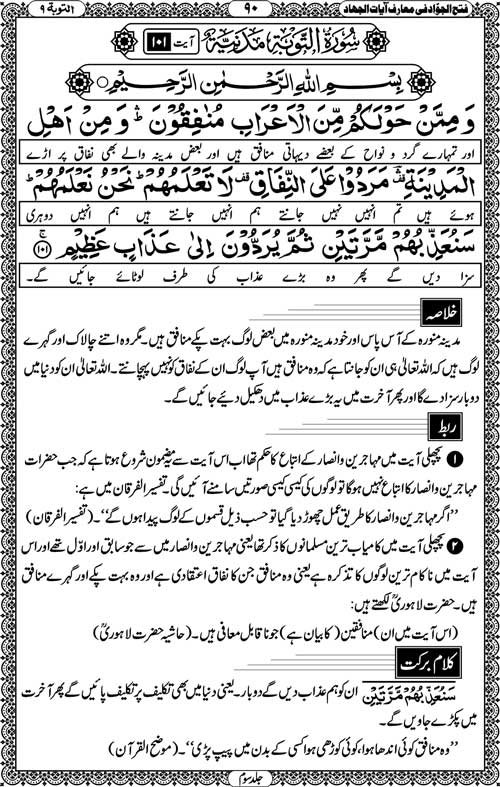 فتح الجوّاد فی معارف آیات الجهاد
۹۰
التوبة ۹
سُوْرَةُ التَّوْبَةِ مَدَنِيَّةٌ آیت ۱۰۱
بِسْمِ اللهِ الرَّحْمٰنِ الرَّحِيْمِ
وَ مِمَّنْ حَوْلَكُمْ مِّنَ الْاَعْرَابِ مُنٰفِقُوْنَ ۛؕ وَ مِنْ اَهْلِ
اور تمہارے گرد و نواح کے بعضے دیہاتی منافق ہیں اور بعض مدینہ والے بھی نفاق پر اڑے
الْمَدِيْنَةِ ۛؔ مَرَدُوْا عَلَى النِّفَاقِ ۫ لَا تَعْلَمُهُمْ ؕ نَحْنُ نَعْلَمُهُمْ ؕ
ہوئے ہیں تم انہیں نہیں جانتے ہم انہیں جانتے ہیں ہم انہیں دوہری
سَنُعَذِّبُهُمْ مَّرَّتَيْنِ ثُمَّ يُرَدُّوْنَ اِلٰى عَذَابٍ عَظِيْمٍ ۚ﴿۱۰۱﴾
سزا دیں گے پھر وہ بڑے عذاب کی طرف لوٹائے جائیں گے۔
خلاصہ
مدینہ منورہ کے آس پاس اور خود مدینہ منورہ میں بعض لوگ بہت پکے منافق ہیں۔ مگر وہ اتنے چالاک اور گہرے
لوگ ہیں کہ اللہ تعالیٰ ہی ان کو جانتا ہے کہ وہ منافق ہیں آپ لوگ ان کے نفاق کو نہیں پہچانتے۔ اللہ تعالیٰ ان کو دنیا میں
دو بار سزا دے گا اور پھر آخرت میں یہ بڑے عذاب میں دھکیل دیئے جائیں گے۔
ربط
۱ پچھلی آیت میں مہاجرین و انصار کے اتباع کا حکم تھا اب اس آیت سے مضمون شروع ہوتا ہے کہ جب حضرات
مہاجرین و انصار کا اتباع نہیں ہوگا تو لوگوں کی کیسی کیسی صورتیں سامنے آئیں گی۔ تفسیر الفرقان میں ہے:
’’اگر مہاجرین و انصار کا طریق عمل چھوڑ دیا گیا تو حسب ذیل قسموں کے لوگ پیدا ہوں گے‘‘۔ (تفسیر الفرقان)
۲ پچھلی آیت میں کامیاب ترین مسلمانوں کا ذکر تھا یعنی مہاجرین و انصار میں سے جو سابق اور اوّل تھے اور اس
آیت میں ناکام ترین لوگوں کا تذکرہ ہے یعنی وہ منافق جن کا نفاق اعتقادی ہے اور وہ بہت پکے اور گہرے منافق
ہیں۔ حضرت لاہوریؒ لکھتے ہیں:
(اس آیت میں ان) منافقین (کا بیان ہے) جو ناقابل معافی ہیں۔ (حاشیہ حضرت لاہوریؒ)
کلام برکت
سَنُعَذِّبُهُمْ مَّرَّتَيْنِ ان کو ہم عذاب دیں گے دو بار۔ یعنی دنیا میں بھی تکلیف پر تکلیف پائیں گے پھر آخرت
میں پکڑے جاویں گے۔
’’وہ منافق کوئی اندھا ہوا، کوئی کوڑھی ہوا کسی کے بدن میں پیپ پڑی‘‘۔ (موضح القرآن)
جلد سوم